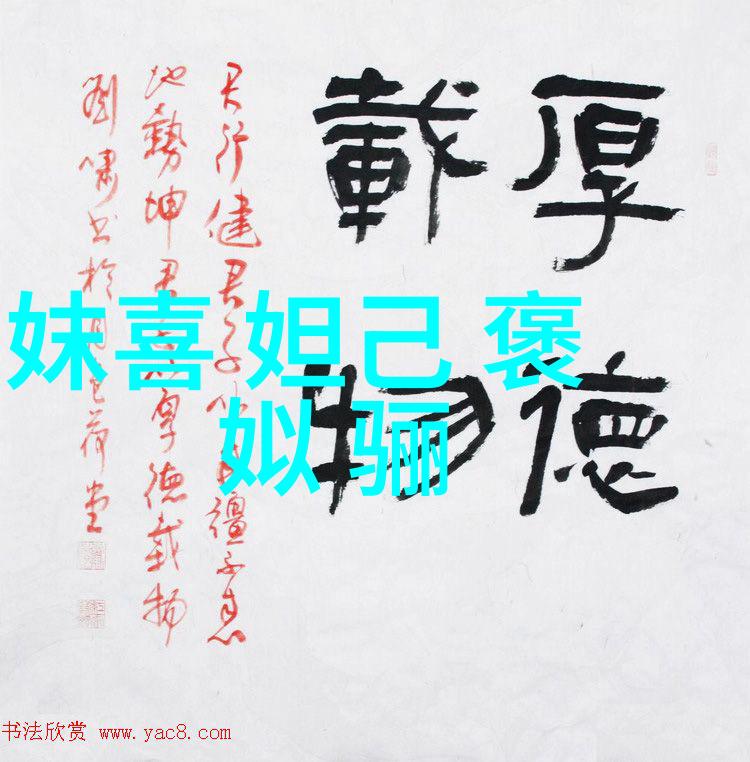 厚德
載物
天行健君子以自彊不息
地勢坤君子以厚德載物
劉嘯书於荷堂
妹喜 妲己 褒
姒 骊
书法欣赏 www.yac8.com